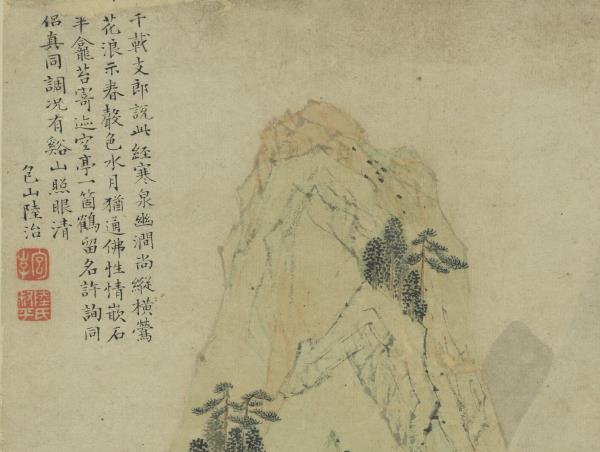 千載支郎說此經寒泉幽澗尚縱橫鶯
花浪示春聲色水月猶通佛性情嵌石
半龕苔寄迹空亭一箇鶴留名許詢同
侶真同調况有谿山照眼清
包山陸治
陸氏叔平